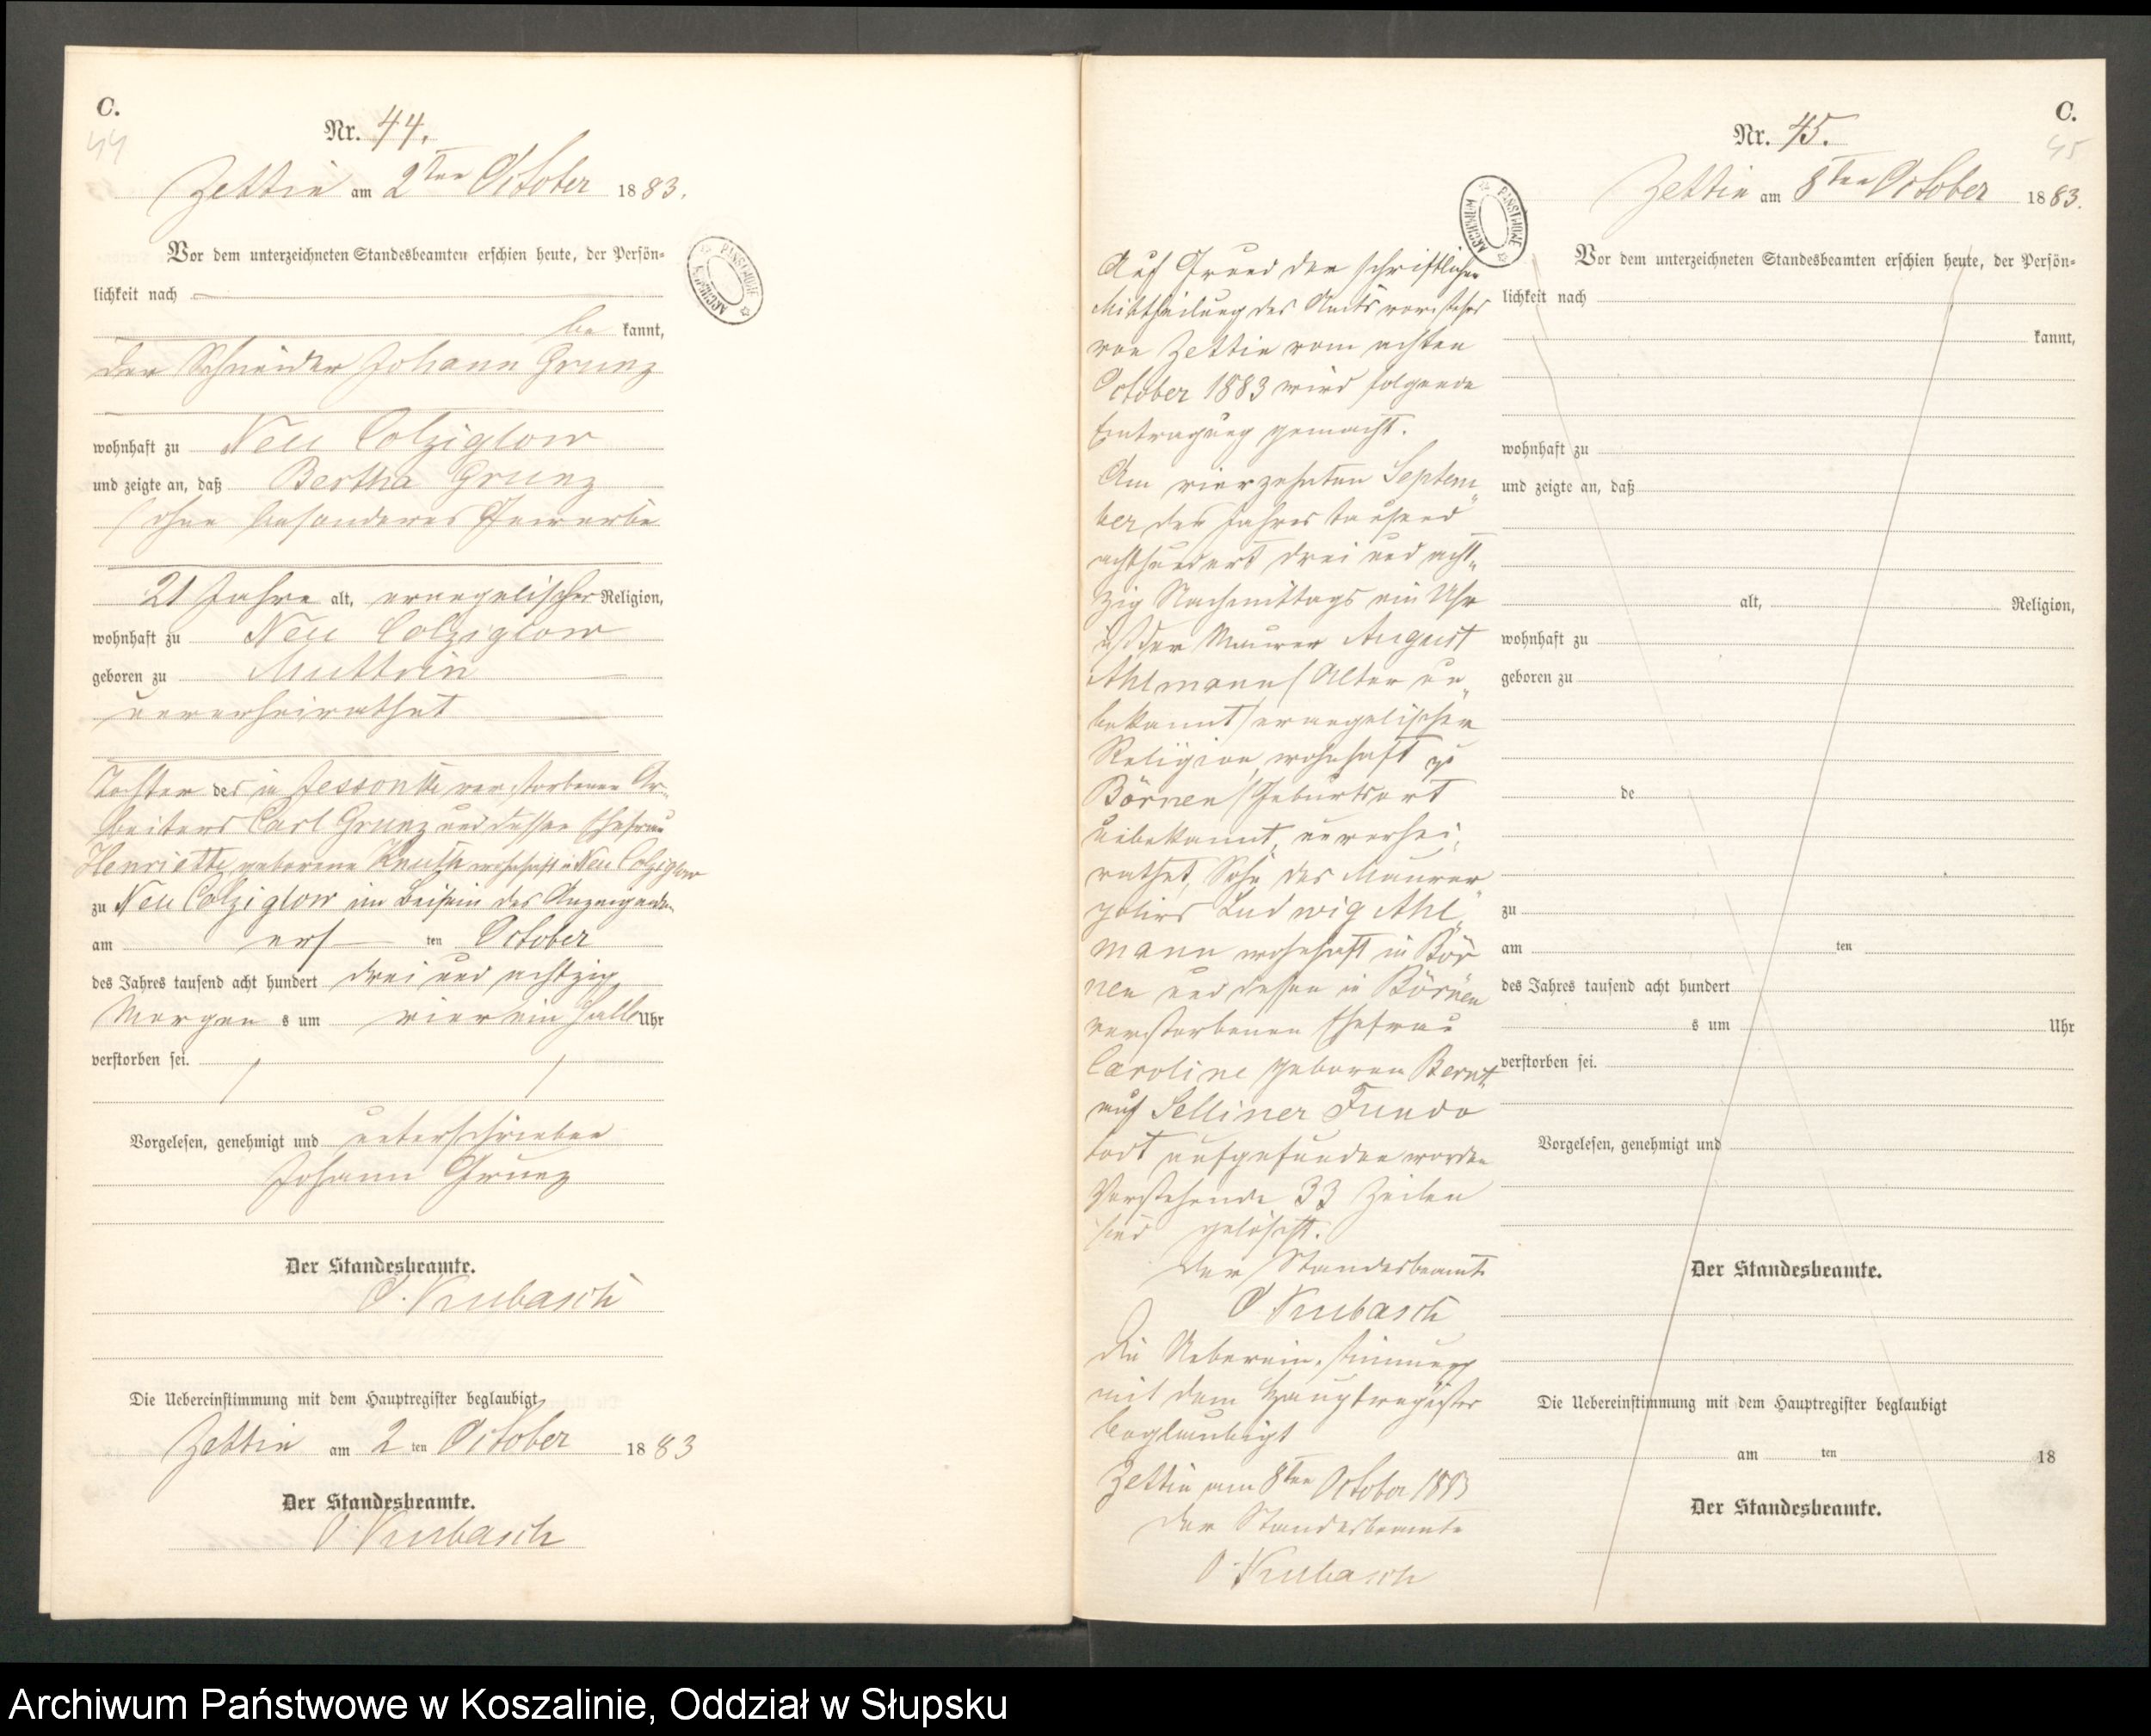 C.
44
Nr. 44.
Zettin am 2ten October 1883.
Vor dem unterzeichneten Standesbeamten erschien heute, der Persön-
lichkeit nach
be kannt,
der Schneider Johann Grunz
wohnhaft zu Neu Colziglow
und zeigte an, daß Bertha Grunz
ohne besonderes Gewerbe
21 Jahre alt, evangelischer Religion,
wohnhaft zu Neu Colziglow
geboren zu Muttrin
unverheirathet
Tochter des in Jessonke verstorbenen Ar-
beiters Carl Grunz und dessen Ehefrau
Henriette geborene Knuth wohnhaft in Neu Colziglow
zu Neu Colziglow im Beisein des Anzeigenden
am ers ten October
des Jahres tausend acht hundert drei und achtzig
Morgen s um vier ein halb Uhr
verstorben sei.
Vorgelesen, genehmigt und unterschrieben
Johann Grunz
Der Standesbeamte.
O. Kubasch
Die Uebereinstimmung mit dem Hauptregister beglaubigt
Zettin am 2 ten October 1883
Der Standesbeamte.
O. Kubasch
C.
45
Nr. 45.
Zettin am 8ten October 1883.
ARCHIWUM PAŃSTWOWE
Auf Grund der schriftlichen
Mittheilung des Amtsvorstehers
von Zettin vom achten
October 1883 wird folgende
Eintragung gemacht.
Am vierzehnten Septem-
ber des Jahres tausend
achthundert drei und acht-
zig Nachmittags ein Uhr
ist der Maurer August
Ahlmann (Alter un-
bekannt) evangelischer
Religion, wohnhaft zu
Börnen (Geburtsort
unbekannt, unverhei-
rathet, Sohn des Maurer
polirs Ludwig Ahl-
mann wohnhaft in Bör
nen und dessen in Börnen
verstorbenen Ehefrau
Caroline geboren Bernt
auf Selliner Fundo
todt aufgefunden worden
Vorstehende 33 Zeilen
sind gelöscht.
Der Standesbeamte
O Kubasch
Die Ueberein-stimmung
mit dem Hauptregister
beglaubigt
Zettin am 8ten October 1883
Der Standesbeamte
O. Kubasch
Vor dem unterzeichneten Standesbeamten erschien heute, der Persön-
lichkeit nach
kannt,
wohnhaft zu
und zeigte an, daß
alt, Religion,
wohnhaft zu
geboren zu
de
zu
am ten
des Jahres tausend acht hundert
s um Uhr
verstorben sei.
Vorgelesen, genehmigt und
Der Standesbeamte.
Die Uebereinstimmung mit dem Hauptregister beglaubigt
am ten 18
Der Standesbeamte.
Archiwum Państwowe w Koszalinie, Oddział w Słupsku